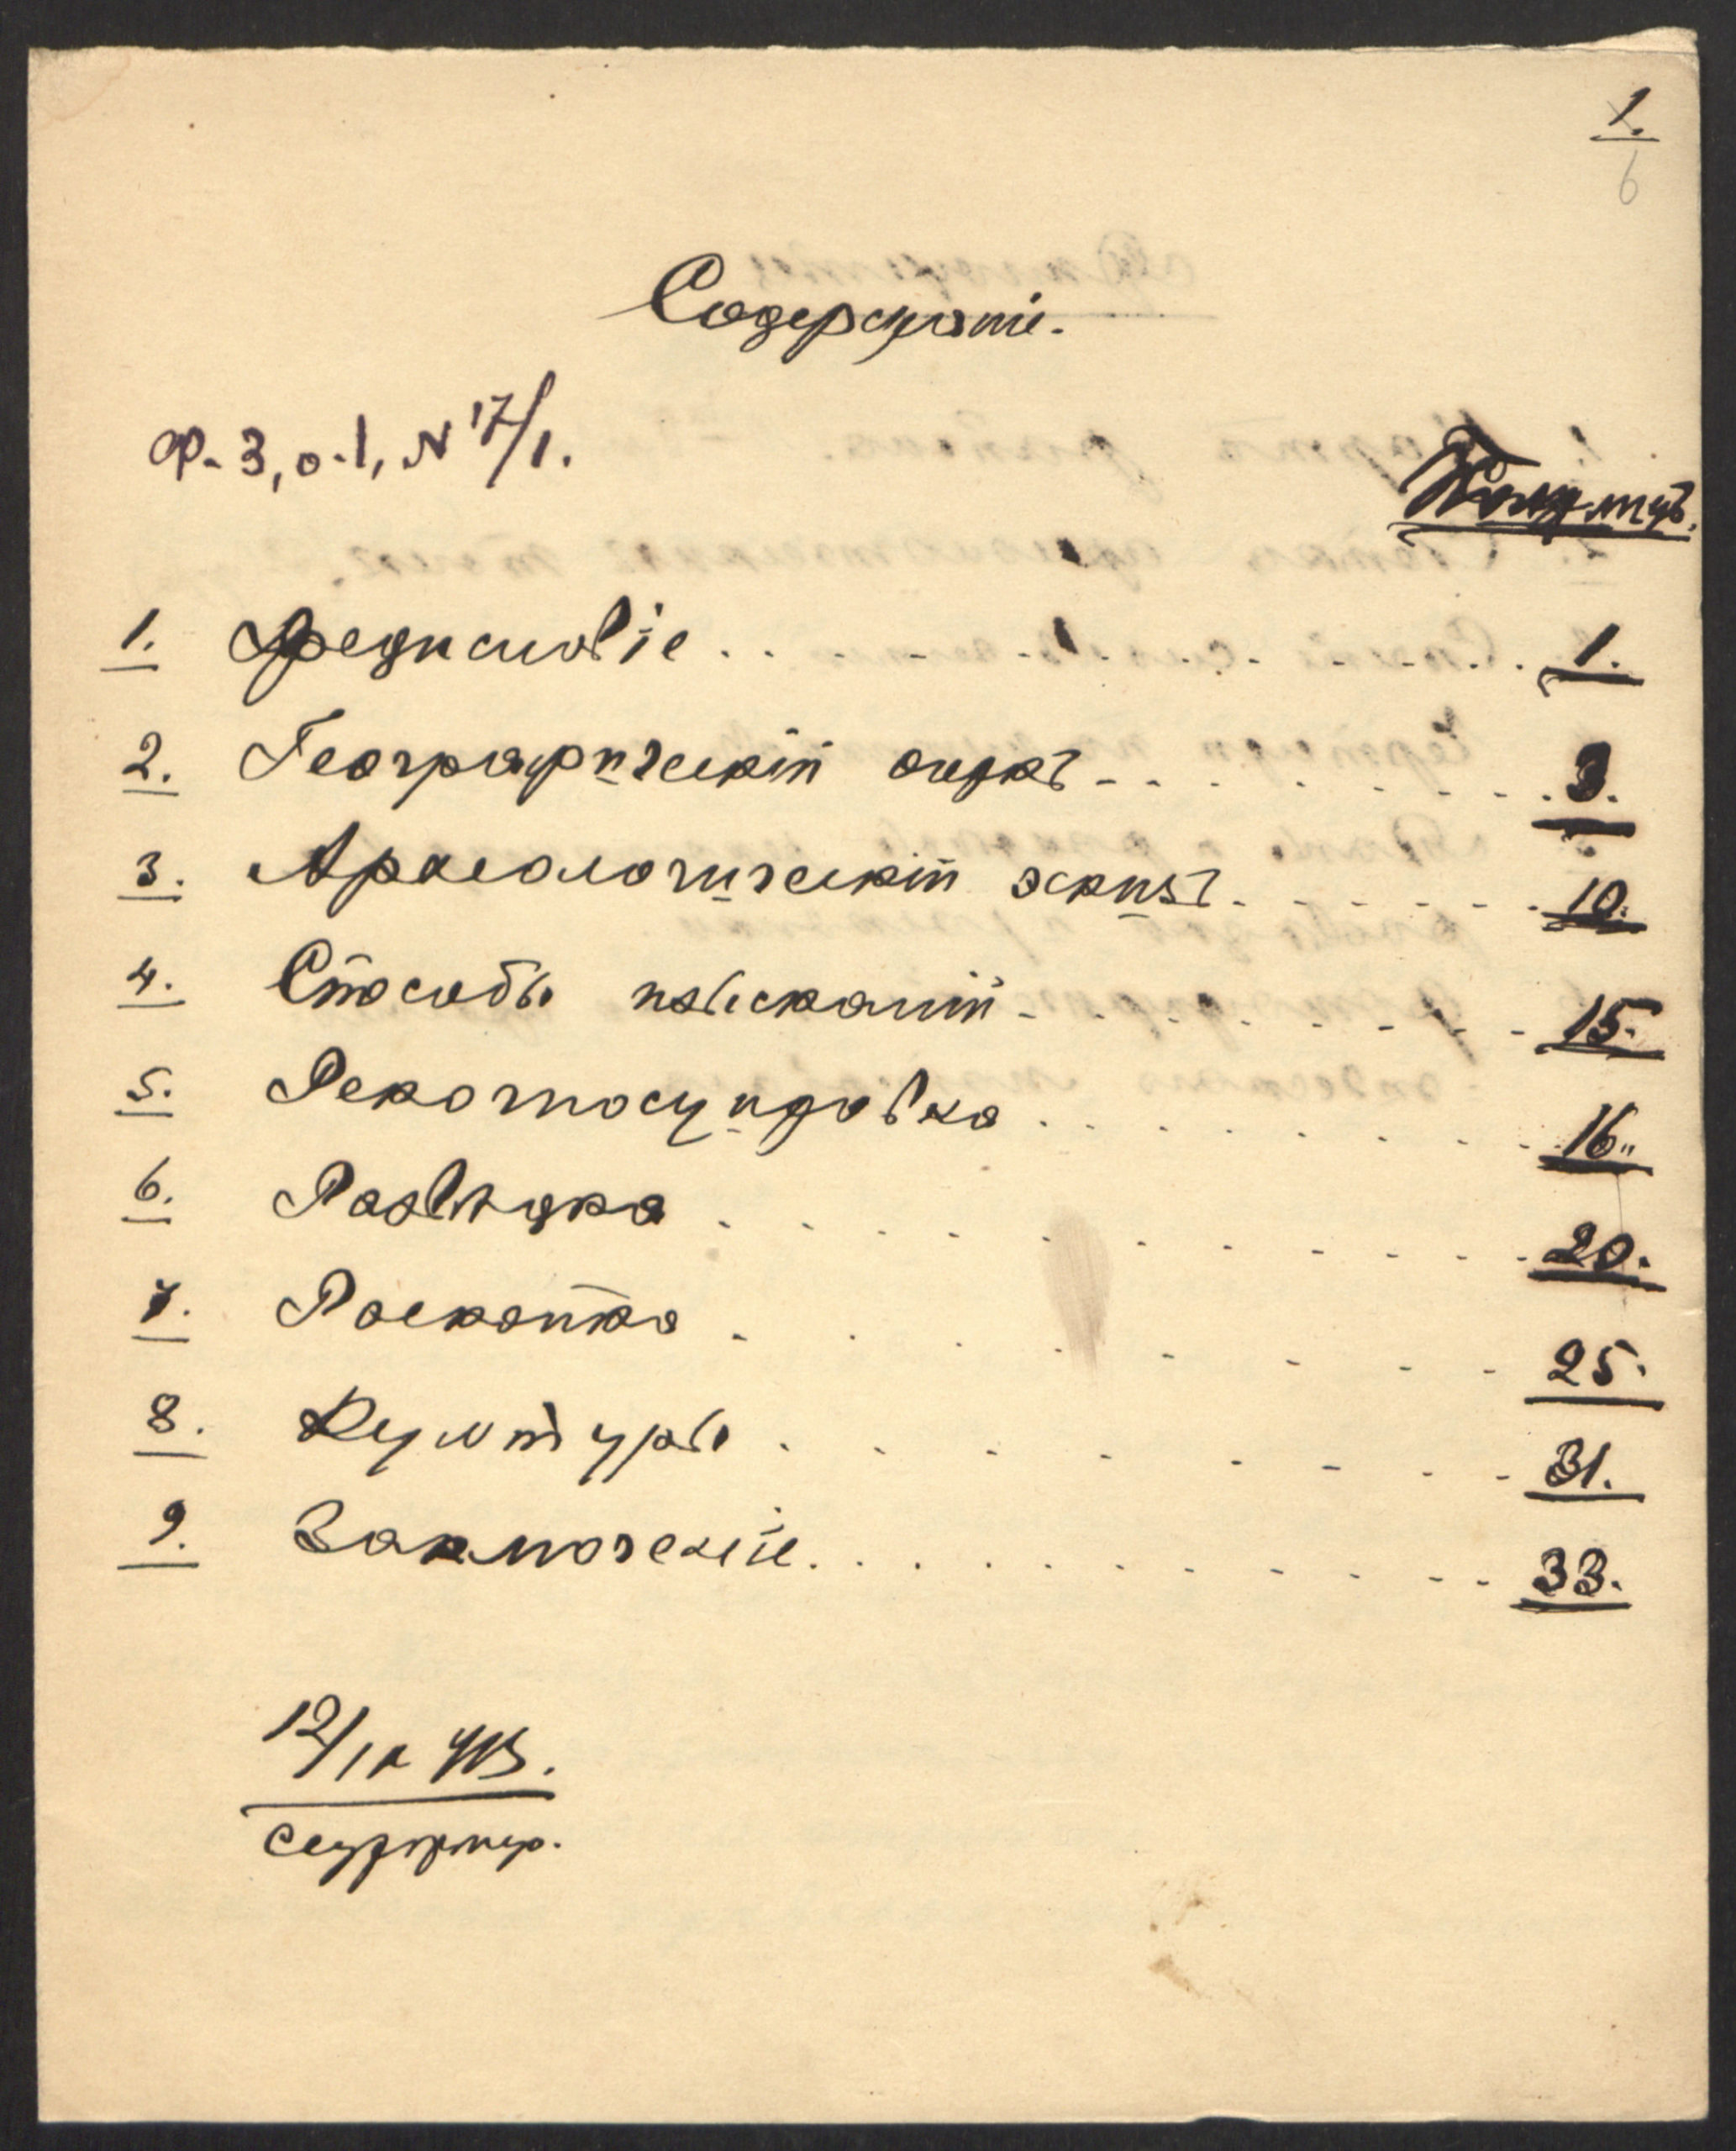 1.
6
Содержаніе.
Ф. 3, о. 1, N 17/1.
1. Предисловіе . . . . . . . . . . 1.
2. Географическій очеркъ . . . . . . . . 3.
3. Археологическій эскизъ . . . . . . 10.
4. Способы изысканій . . . . . . . . 15.
5. Рекогносцировка . . . . . . . . 16.
6. Развѣдка . . . . . . . . . . 20.
7. Раскопка . . . . . . . . 25.
8. Культуры . . . . . . . . 31.
9. Заключеніе . . . . . . . . . 33.